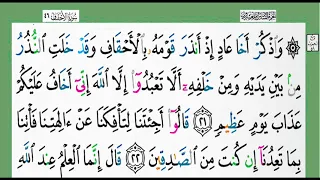 سورة الأحقاف ٤٦
۞ وَٱذۡكُرۡ أَخَا عَادٍ إِذۡ أَنذَرَ قَوۡمَهُۥ بِٱلۡأَحۡقَافِ وَقَدۡ خَلَتِ ٱلنُّذُرُ
مِنۢ بَيۡنِ يَدَيۡهِ وَمِنۡ خَلۡفِهِۦٓ أَلَّا تَعۡبُدُوٓاْ إِلَّا ٱللَّهَ إِنِّيٓ أَخَافُ عَلَيۡكُمۡ
عَذَابَ يَوۡمٍ عَظِيمٖ ٢١ قَالُوٓاْ أَجِئۡتَنَا لِتَأۡفِكَنَا عَنۡ ءَالِهَتِنَا فَأۡتِنَا
بِمَا تَعِدُنَآ إِن كُنتَ مِنَ ٱلصَّٰدِقِينَ ٢٢ قَالَ إِنَّمَا ٱلۡعِلۡمُ عِندَ ٱللَّهِ